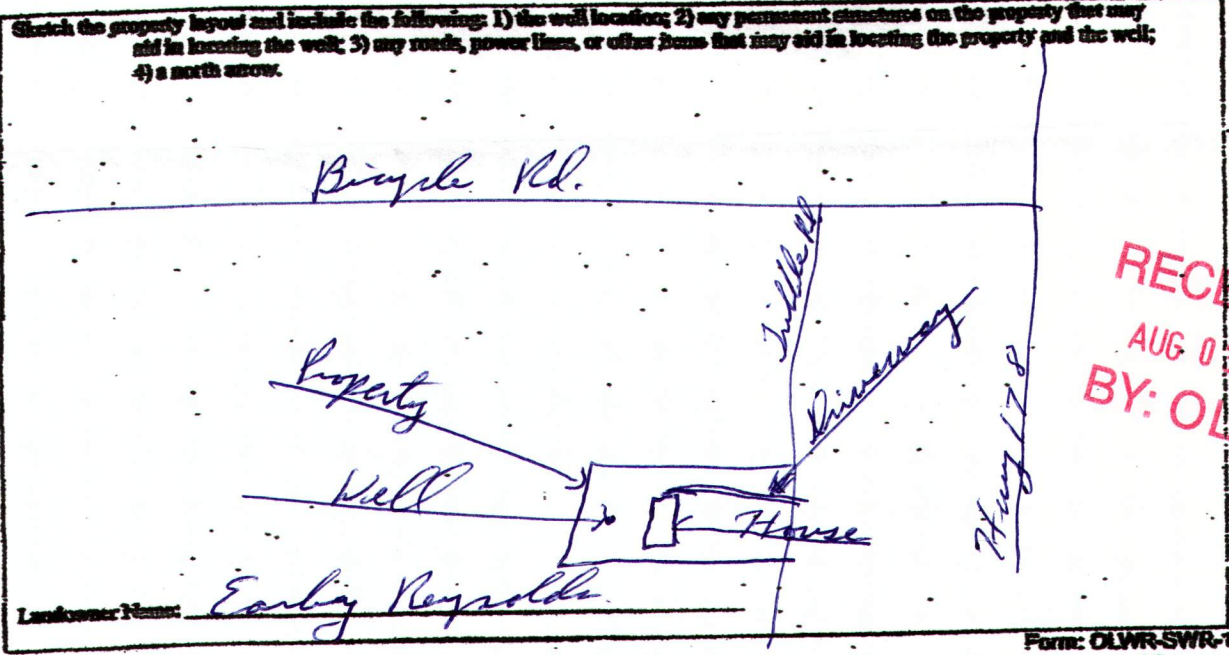 Sketch the property layout and include the following: 1) the well location; 2) any permanent structures on the property that may
aid in locating the well; 3) any roads, power lines, or other items that may aid in locating the property and the well;
4) a north arrow.
Bicycle Rd.
RECE
AUG 0
BY: OL
Driveway
Property
Hwy 178
Well
House
Landowner Name: Reynolds
Form: OLWR-SWR-1